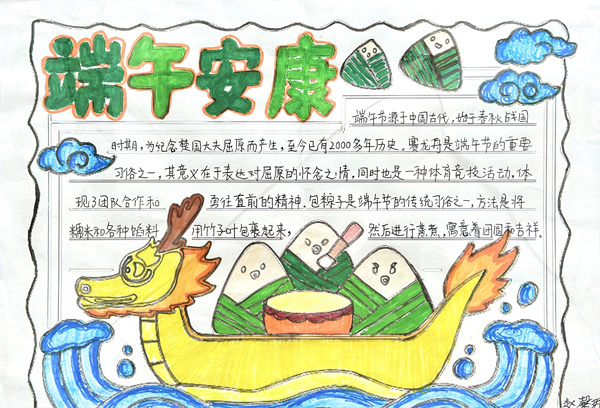 端午安康
端午节源于中国古代,始于春秋战国
时期,为纪念楚国大夫屈原而产生,至今已有2000多年历史。赛龙舟是端午节的重要
习俗之一,其意义在于表达对屈原的怀念之情,同时也是一种体育竞技活动,体
现了团队合作和 勇往直前的精神。包粽子是端午节的传统习俗之一,方法是将
糯米和各种馅料 用竹子叶包裹起来, 然后进行蒸煮,寓意着团圆和吉祥.